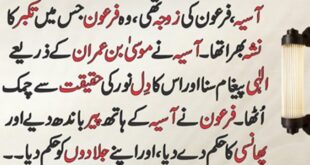 آسیہ، فرعون کی زوجہ تھی، وہ فرعون جس میں تکبر کا
نشہ بھرا تھا۔ آسیہ نے موسیٰ بن عمران کے ذریعے
الٰہی پیغام سنا اور اس کا دل نور کی حقیقت سے چمک
اُٹھا۔ فرعون نے آسیہ کے ہاتھ پیر باندھ دیے اور
پھانسی کا حکم دے دیا، اور اپنے جلادوں کو حکم دیا۔۔۔